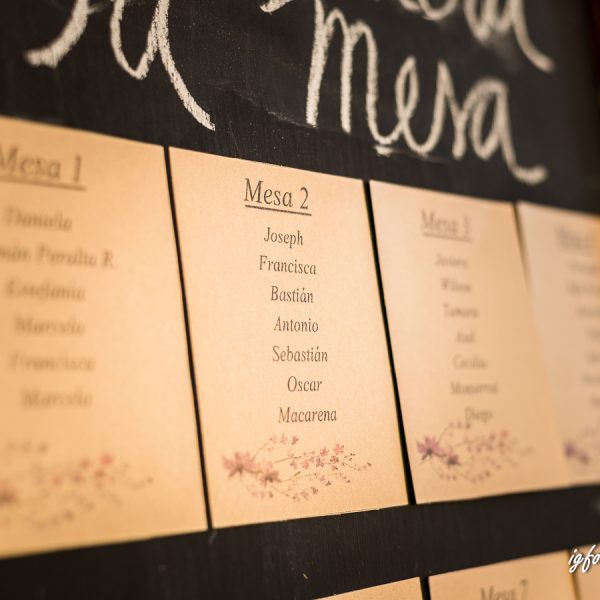 tu mesa
Mesa 1
Daniela
Peralta R.
Estefania
Marcelo
Francisca
Marcelo
Mesa 2
Joseph
Francisca
Bastián
Antonio
Sebastián
Oscar
Macarena
Mesa 3
Javiera
Wilson
Tamara
Axel
Cecilia
Monserrat
Diego
Mesa 7